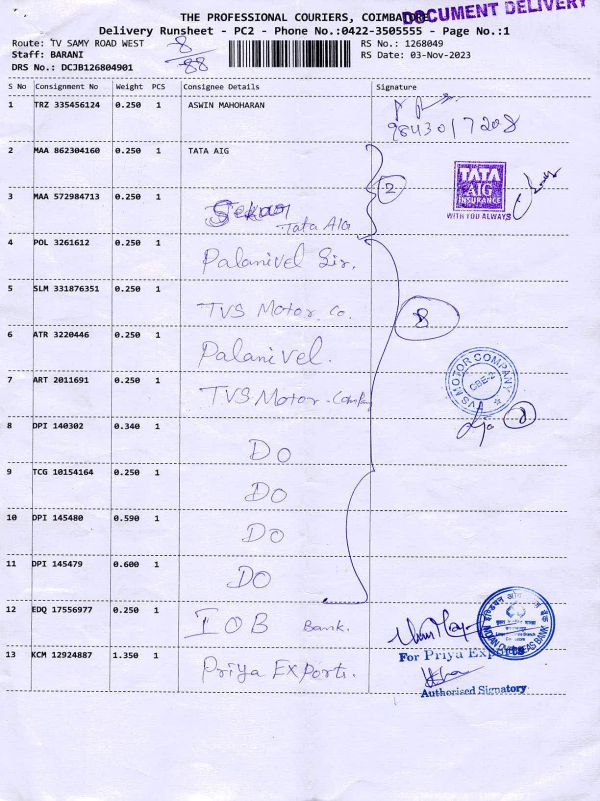 DOCUMENT DELIVERY
THE PROFESSIONAL COURIERS, COIMBATORE
Delivery Runsheet - PC2 - Phone No.:0422-3505555 - Page No.:1
Route: TV SAMY ROAD WEST 8 RS No.: 1268049
Staff: BARANI 88 RS Date: 03-Nov-2023
DRS No.: DCJB126804901
S No Consignment No Weight PCS Consignee Details Signature
1 TRZ 335456124 0.250 1 ASWIN MAHOHARAN
9843017208
2 MAA 862304160 0.250 1 TATA AIG
TATA
AIG
INSURANCE
WITH YOU ALWAYS
2
3 MAA 572984713 0.250 1 Sekar
Tata AIG
4 POL 3261612 0.250 1 Palanivel Sir,
5 SLM 331876351 0.250 1 TVS Motor Co.
8
6 ATR 3220446 0.250 1 Palanivel.
7 ART 2011691 0.250 1 TVS Motor. Company
TVS MOTOR COMPANY
CBE-2
8
8 DPI 140302 0.340 1 DO
9 TCG 10154164 0.250 1 DO
10 DPI 145480 0.590 1 DO
11 DPI 145479 0.600 1 DO
12 EDQ 17556977 0.250 1 IOB Bank.
INDIAN OVERSEAS BANK
13 KCM 12924887 1.350 1 Priya Exports.
For Priya Exports
Authorised Signatory